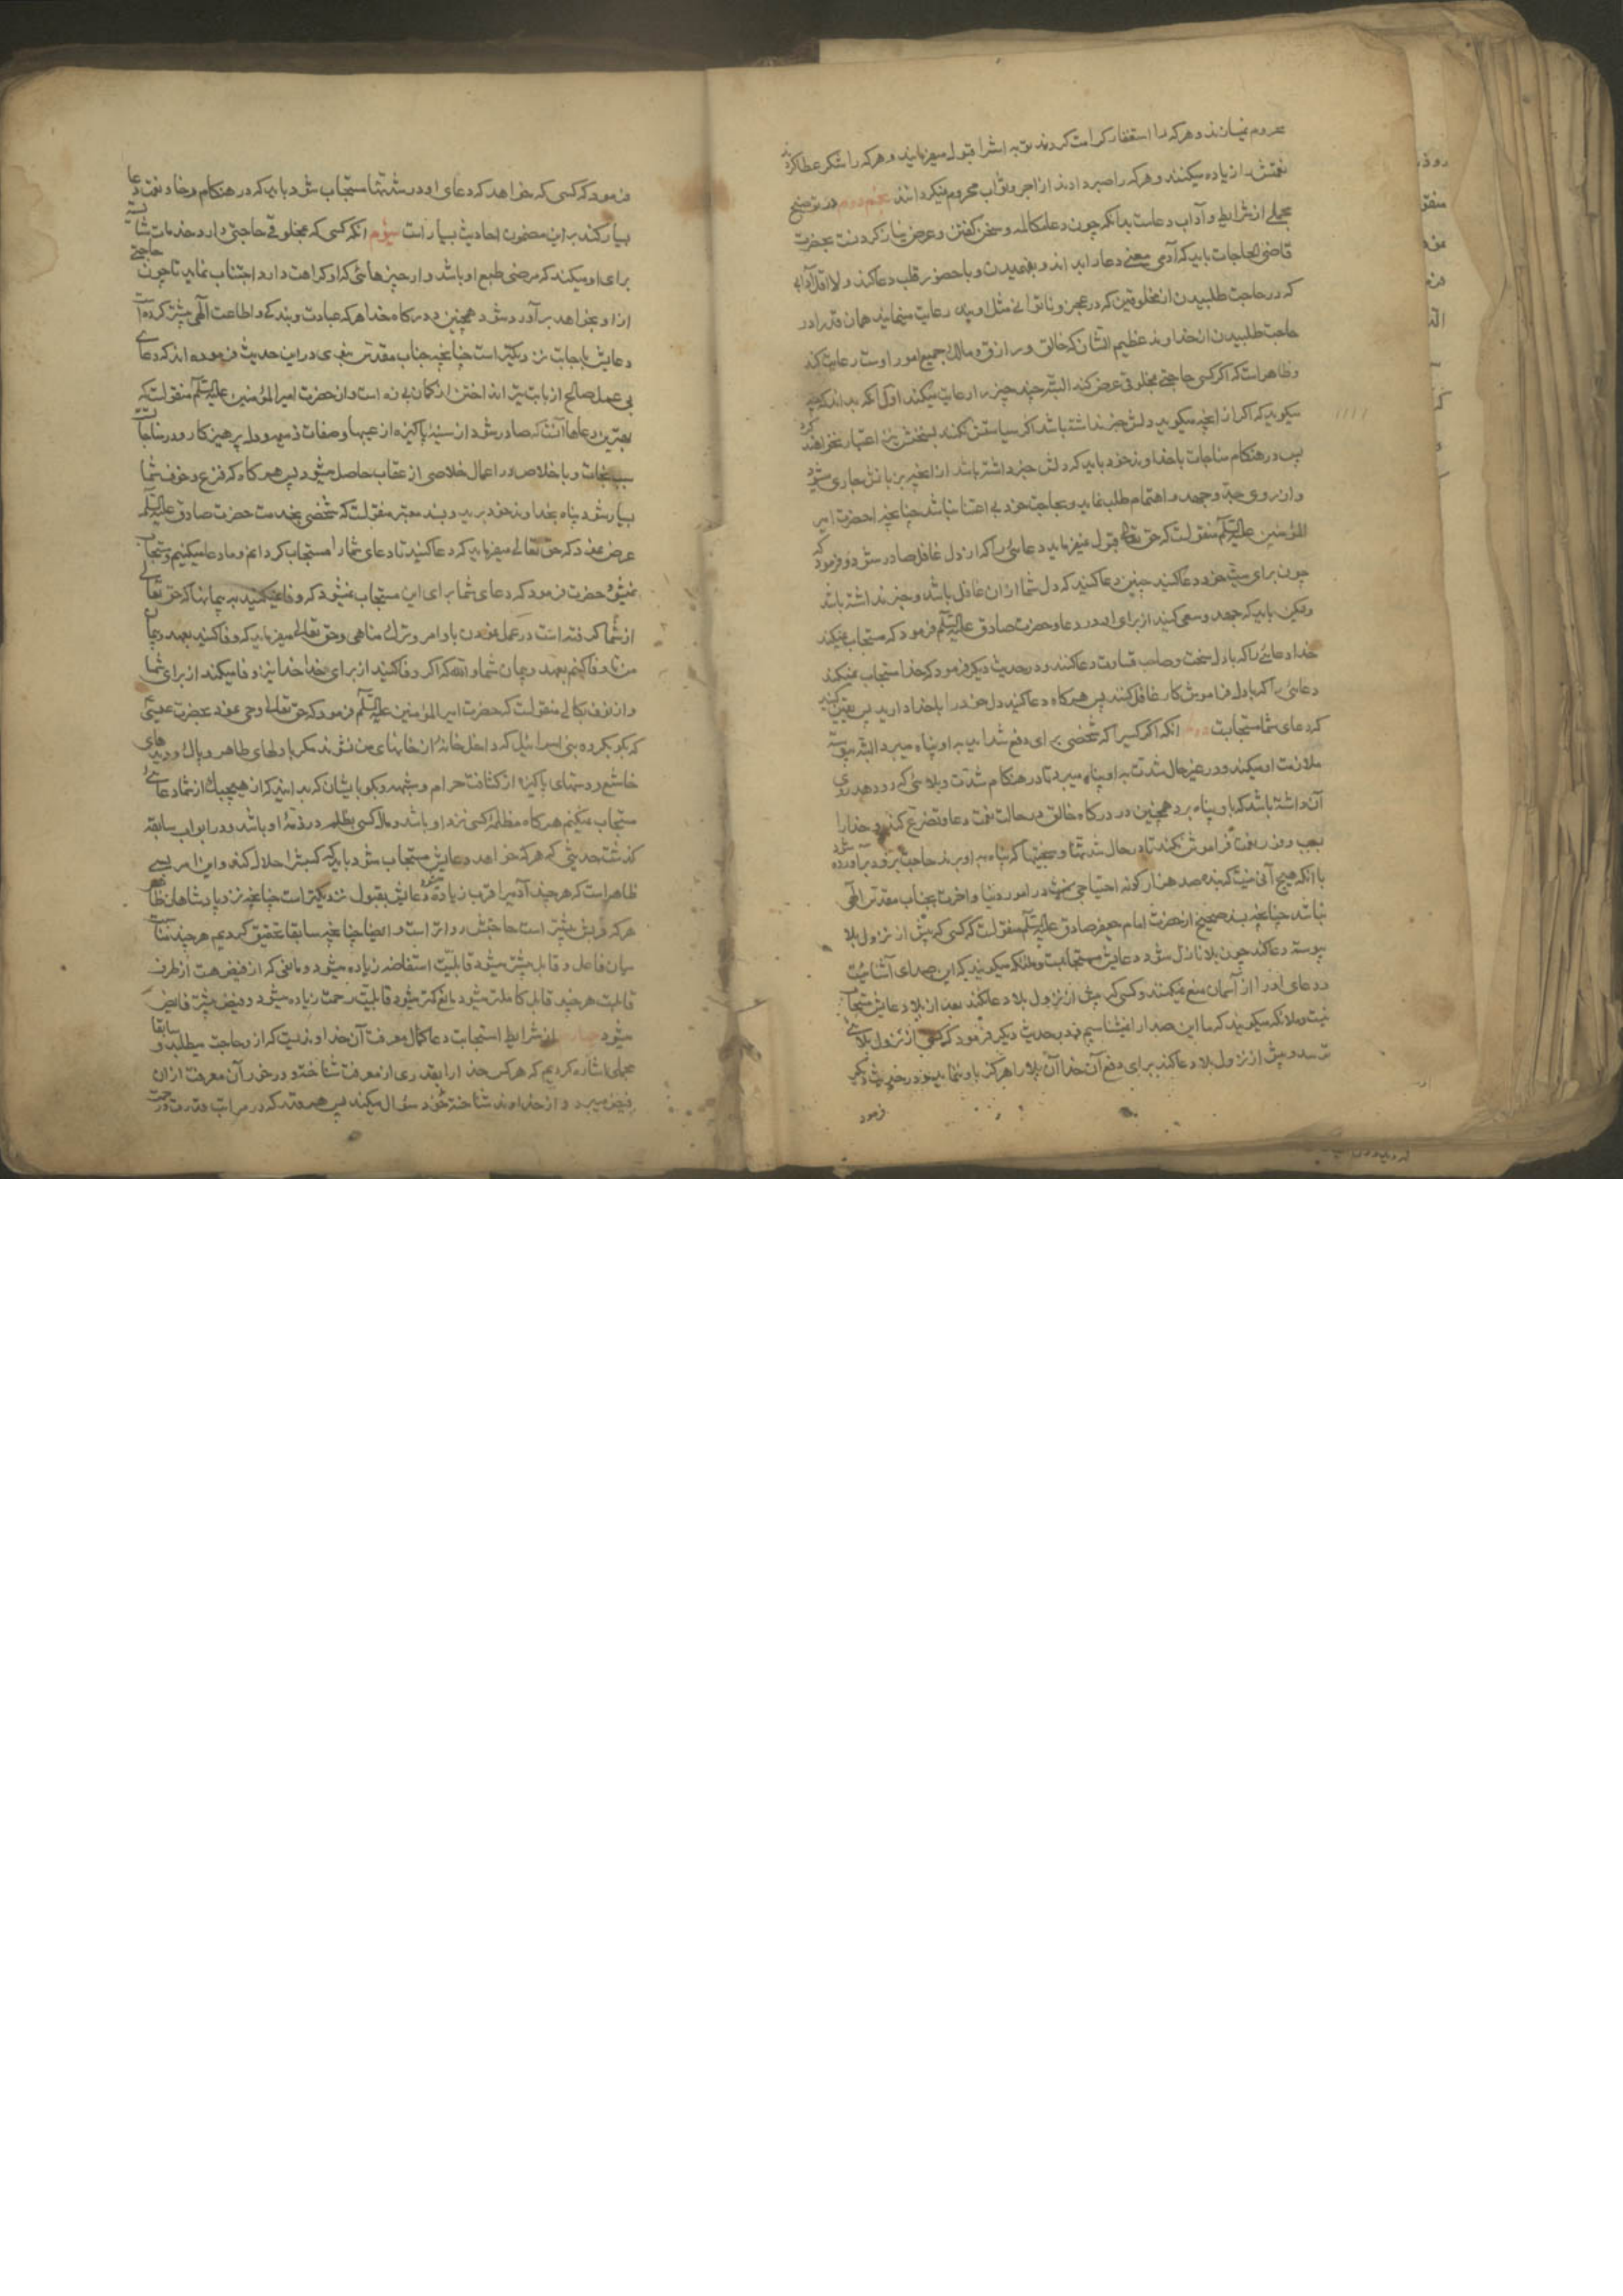 محروم نمیسازند و هرکه را استغفار کرامت کردند توبه اش را قبول میفرمایند و هرکه را شکر عطا کردند
نعمتش را زیاده میکنند و هرکه را صبر دادند از اجر و ثواب محروم نمیکردانند نجم دوم در توضیح
مجملی از شرایط و آداب دعاست بدانکه چون دعا مکالمه و سخن کفتن و عرض نیاز کردنست بحضرت
قاضی الحاجات باید که آدمی معنی دعا را بداند و بفهمیدن و با حضور قلب دعا کند و لااقل آدابی
که در حاجت طلبیدن از مخلوقین که در عجز و ناتوانی مثل اویند رعایت مینماید همان قدر را در
حاجت طلبیدن از خداوند عظیم الشان که خالق و رازق و مالک جمیع امور اوست رعایت کند
و ظاهر است که اکر کسی حاجتی بمخلوقی عرض کند البته چند چیز را رعایت میکند اول آنکه بداند که چه
میکوید که اکر از آنچه میکوید دلش خبر نداشته باشد اکر سیاستش نکنند بسخنش نیز اعتبار نخواهند کرد
پس در هنکام مناجات با خداوند خود باید که دلش خبر داشته باشد از آنچه بر زبانش جاری میشود
و از روی جد و جهد و اهتمام طلب نماید و بحاجت خود بی اعتنا نباشد چنانچه از حضرت امیر
المؤمنین علیه السلم منقولست که حق تعالی قبول نمیفرماید دعائی را که از دل غافل صادر شود و فرمود که
چون برای میت خود دعا کنید چنین دعا کنید که دل شما از آن غافل باشد و خبر نداشته باشد
ولیکن باید که جهد و سعی کنید از برای او در دعا و حضرت صادق علیه السلم فرمود که مستجاب نمیکند
خدا دعائی را که با دل سخت و صاحب قساوت دعا کنند و در حدیث دیکر فرمود که خدا مستجاب نمیکند
دعائی را که با دل فراموش کار غافل کنند پس هرکاه دعا کنید دل خود را با خدا دارید پس یقین کنید
که دعای شما مستجابست دوم آنکه اکر کسی را که شخصی برای دفع شداید به او پناه میبرد البته پیوسته
ملازمت او میکند و در غیر حال شدت به او پناه میبرد تا در هنکام شدت و بلائی که رو دهد روی
آن داشته باشد که باو پناه برد همچنین در درکاه خالق در حالت نعمت دعا و تضرع کند و خدا را
بسبب وفور نعمت فراموش نکند تا در حال شدتها و سختیها که پناه به او برند حاجت زود برآورده شود
با آنکه هیچ آنی نیست که بنده صد هزار کونه احتیاجش در امور دنیا و آخرت بجناب مقدس الهی
نباشد چنانچه بسند صحیح از حضرت امام جعفر صادق علیه السلم منقولست که کسی که پیش از نزول بلا
پیوسته دعا کند چون بلا نازل شود دعایش مستجابست و ملائکه میکویند که این صدای آشنائیست
و دعای او را از آسمان منع نمیکنند و کسی که پیش از نزول بلا دعا نکند بعد از بلا دعایش مستجاب
نیست و ملائکه میکویند که ما این صدا را نمیشناسیم و در حدیث دیکر فرمود که کسی از نزول بلائی
ترسد و پیش از نزول بلا دعا کند برای دفع آن خدا آن بلا را هرکز باو ننماید و در حدیث دیکر
فرمود
فرمود که کسی که خواهد که دعای او در شدتها مستجاب شود باید که در هنکام رخا و نعمت دعا
بسیار کند بر این مضمون احادیث بسیار است سیم آنکه کسی که بمخلوقی حاجتی دارد خدمات شایسته
برای او میکند که مرضی طبع او باشد و از چیزهائی که او کراهت دارد اجتناب نماید تا چون حاجتی
از او بخواهد برآورده شود همچنین در درکاه خدا هرکه عبادت و بندکی و اطاعت الهی بیشتر کرده است
دعایش باجابت نزدیکتر است چنانچه جناب مقدس نبوی در این حدیث فرموده اند که دعای
بی عمل صالح از بابت تیر انداختن از کمان بی زه است و از حضرت امیر المؤمنین علیه السلم منقولست که
بهترین دعاها آنست که صادر شود از سینه پاکیزه از عیبها و صفات ذمیمه و دل پرهیزکار و در مناجات
سبب نجات و باخلاص در اعمال خلاصی از عقاب حاصل میشود پس هرکاه که فزع و خوف شما
بسیار شود پناه بخداوند خود برید و بسند معتبر منقولست که شخصی بخدمت حضرت صادق علیه السلم
عرض نمود که حق تعالی میفرماید که دعا کنید تا دعای شما را مستجاب کردانم و ما دعا میکنیم و مستجاب
نمیشود حضرت فرمود که دعای شما برای این مستجاب نمیشود که وفا نمیکنید به پیمانها که حق تعالی
از شما کرفته است در عمل نمودن باوامر و ترک مناهی و حق تعالی میفرماید که وفا کنید بعهد و پیمان
من تا وفا کنم بعهد و پیمان شما و الله که اکر وفا کنید از برای خدا خدا نیز وفا میکند از برای شما
و از نوف بکالی منقولست که حضرت امیر المؤمنین علیه السلم فرمود که حق تعالی وحی نمود بحضرت عیسی
که بکو بکروه بنی اسرائیل که داخل خانهٔ از خانهای من نشوند مکر با دلهای طاهر و پاک و دیدهای
خاشع و دستهای پاکیزه از کثافت حرام و شبهه و بکو بایشان که بدانید که از هیچیک از شما دعائی
مستجاب نمیکنم هرکاه مظلمه کسی نزد او باشد و مال کسی بظلم در ذمه او باشد و در ابواب سابقه
کذشت حدیثی که هرکه خواهد دعایش مستجاب شود باید که کسبش را حلال کند و این امر نیز
ظاهر است که هر چند آدمی را قرب زیاده شود دعایش بقبول نزدیکتر است چنانچه نزد پادشاهان ظاهر
هرکه قربش بیشتر است حاجتش رواتر است و ایضا چنانچه سابقا تحقیق کردیم هر چند مناسبت
میان فاعل و قابل بیشتر میشود قابلیت استفاضه زیاده میشود و مانعی که از فیض هست از طرف
قابلست هر چند قابل کاملتر میشود مانع کمتر میشود قابلیت رحمت زیاده میشود و فیض بیشتر فایض
میشود چهارم از شرایط استجابت دعا کمال معرفت آن خداوندیست که از او حاجت میطلبد و سابقا
مجملی اشاره کردیم که هرکس خدا را بقدری از معرفت شناخته و در خور آن معرفت از آن
فیض میبرد و از خداوند شناخته خود سؤال میکند پس هر قدر که در مراتب قدرت و رحمت